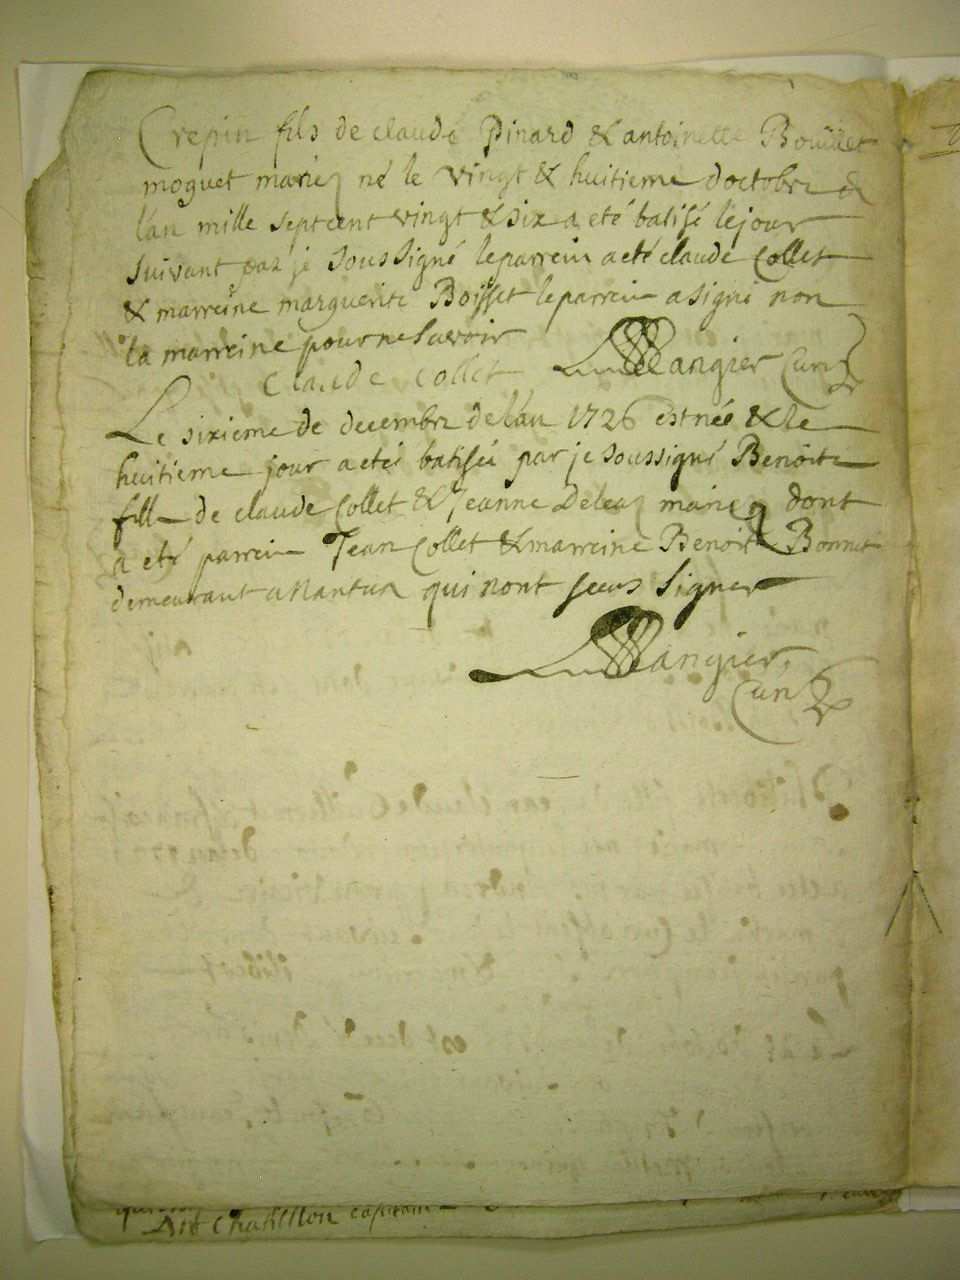 Crepin fils de claude Pinard & antoinette Boüillet
moguet mariez né le vingt & huitieme doctobre de
l'an mille septcent vingt & six a eté batisé le jour
suivant par je soussigné le parrein a eté claude Collet
& marreine marguerite Boisset le parrein a signé non
la marreine pour ne savoir
Claude Collet Mangier Curé
Le sixieme de decembre de l'an 1726 est née & le
huitieme jour a eté batisée par je soussigné Benoite
fille de claude Collet & Jeanne Deleaz mariez dont
a eté parrein Jean Collet & marreine Benoite Bonnet
demeurant a Nantua qui nont sceus signer
Mangier
Curé
Chatillon capitain